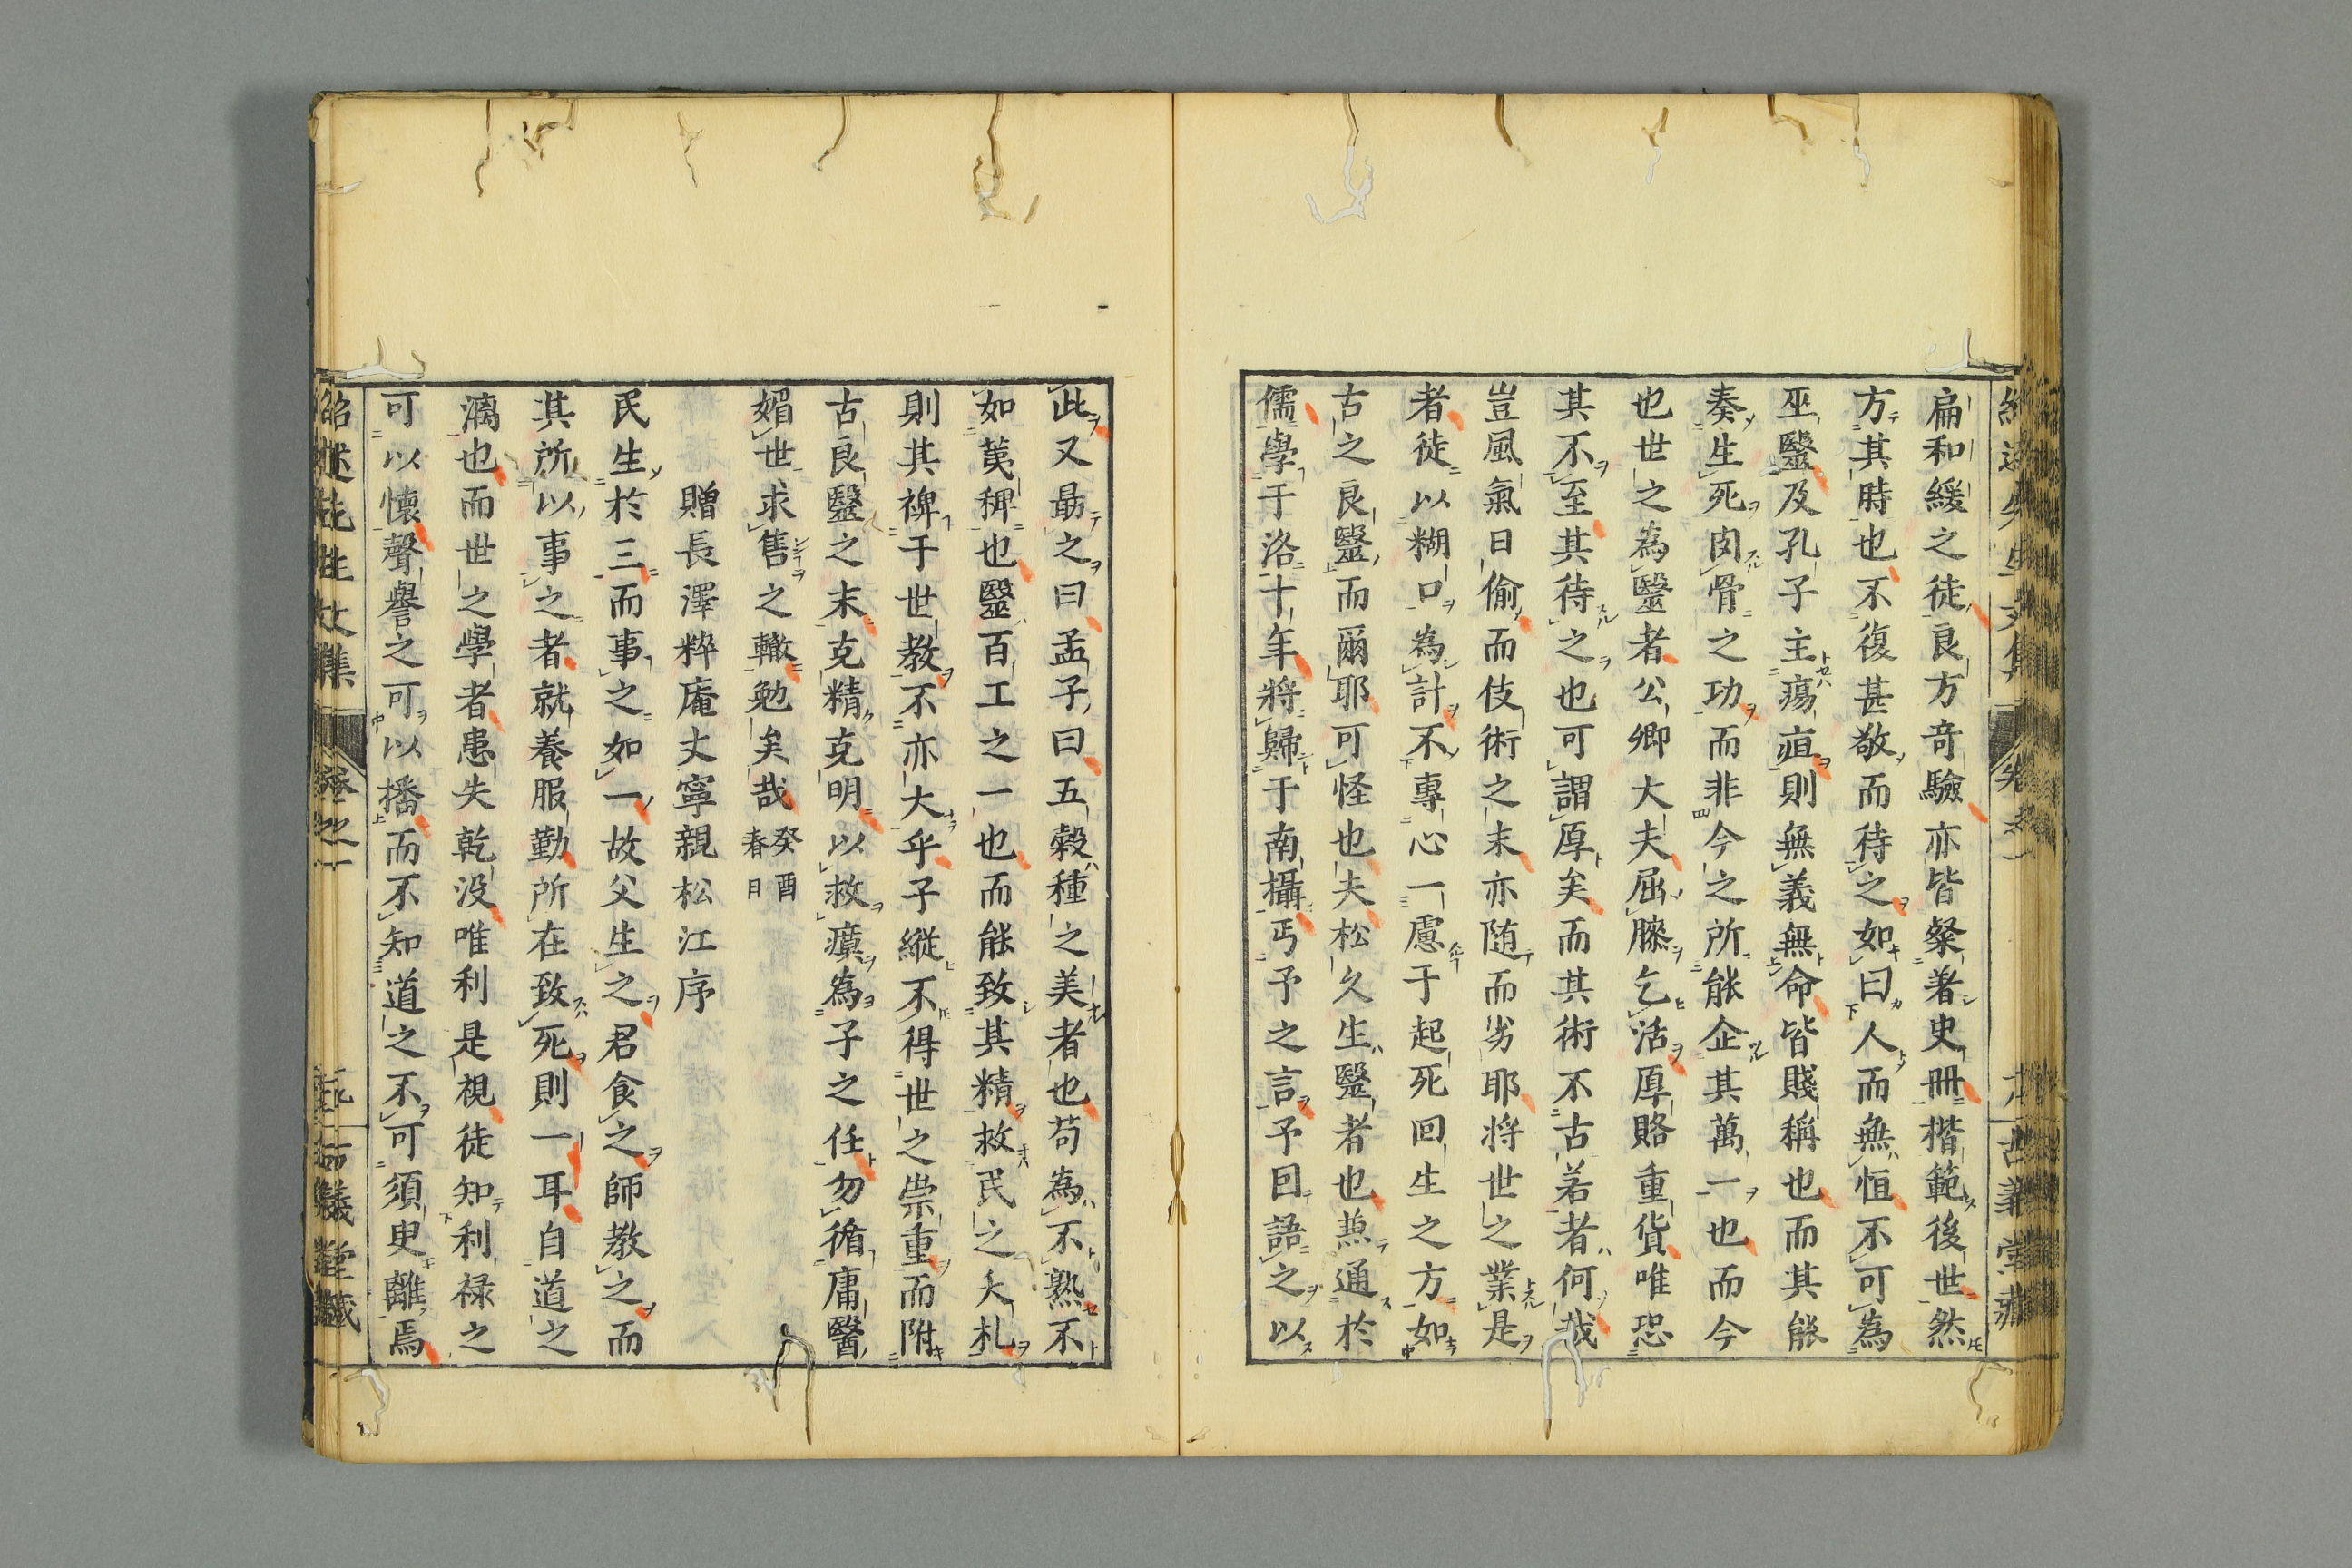 扁和緩之徒良方竒驗亦皆粲著史冊楷範後世然
方其時也不復甚敬而待之如曰人而無恒不可為
巫毉及孔子主瘍疽則無義無命皆賤稱也而其能
奏生死肉骨之功而非今之所能企其萬一也而今
也世之為毉者公卿大夫屈膝乞活厚賂重貨唯恐
其不至其待之也可謂厚矣而其術不古若者何哉
豈風氣日偷而伎術之末亦随而劣耶将世之業是
者徒以糊口為計不專心一慮于起死回生之方如
古之良毉而爾耶可怪也夫松久生毉者也𠔥通於
儒學于洛十年将歸于南攝丐予之言予回語之以
此又最之曰孟子曰五穀種之美者也苟為不熟不
如荑稗也毉百工之一也而能致其精救民之夭札
則其裨于世教不亦大乎子縱不得世之崇重而附
古良毉之末克精克明以救癀為子之任勿循庸醫
媚世求售之轍勉矣哉癸酉春日
贈長澤粹庵丈寧親松江序
民生於三而事之如一故父生之君食之師教之而
其所以事之者就養服勤所在致死則一耳自道之
漓也而世之學者患失乾没唯利是視徒知利禄之
可以懐聲譽之可以播而不知道之不可須臾離焉
紹述先生文集 卷之一 古義堂藏